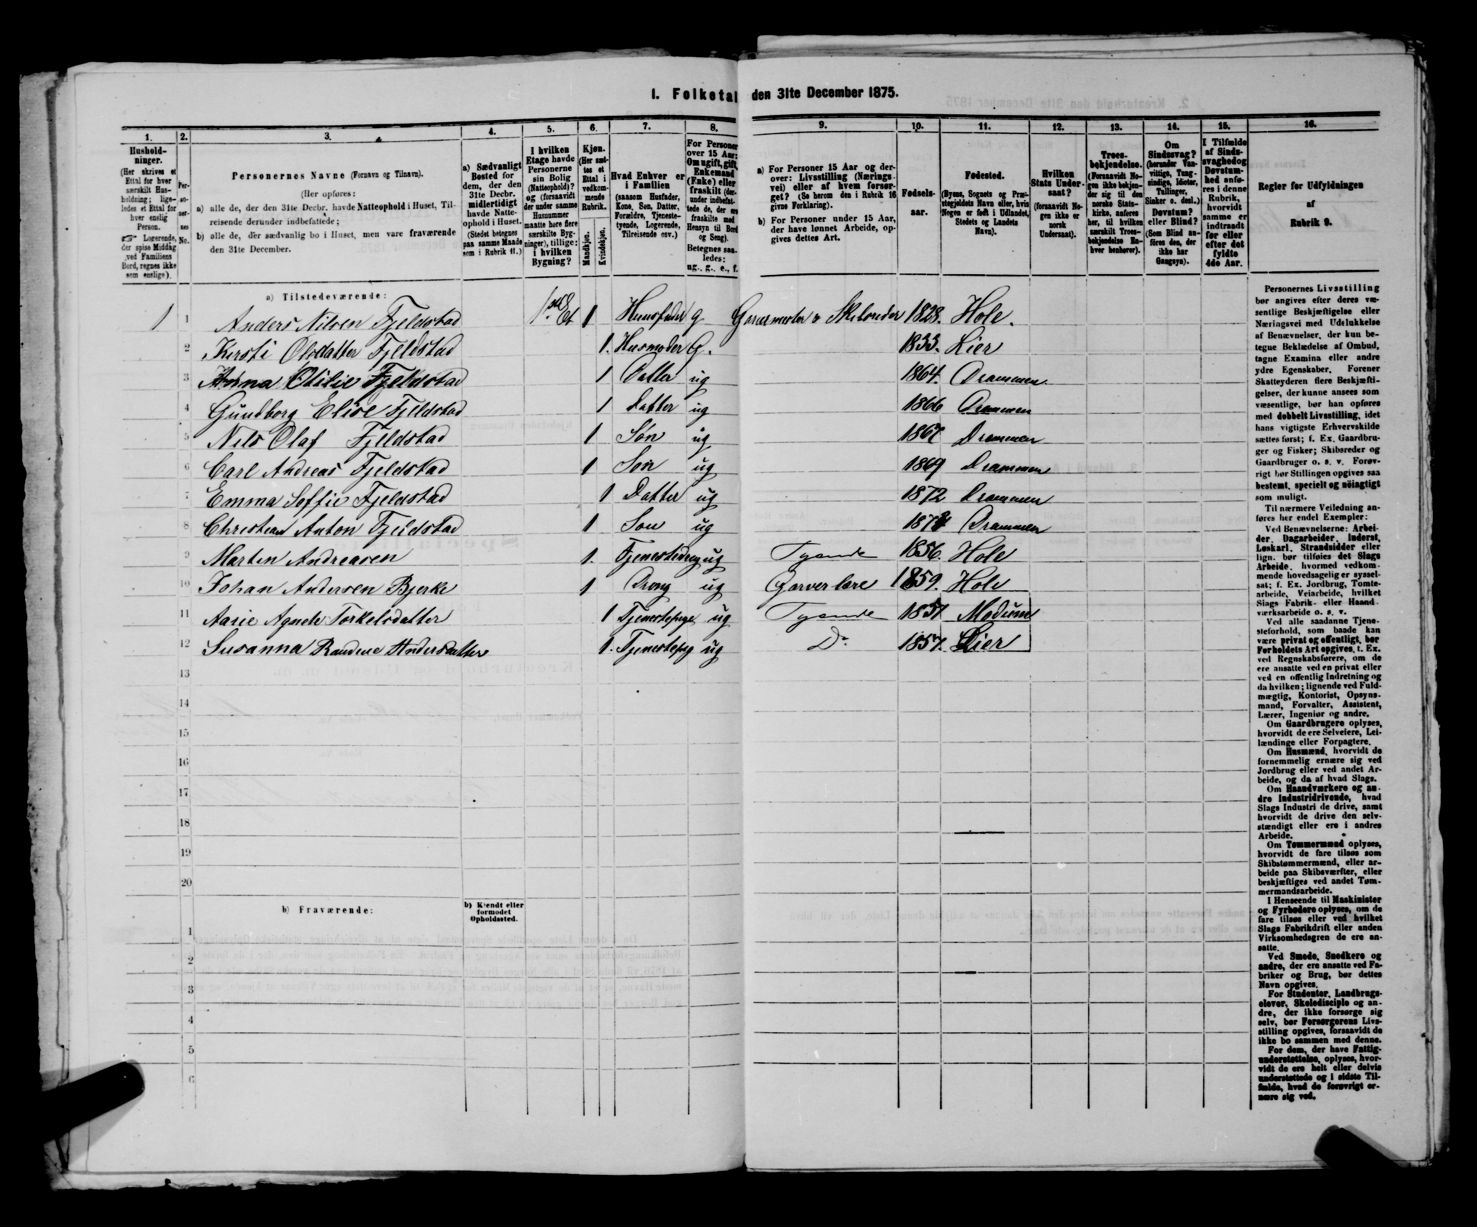 1. Folketal den 31te December 1875.
1. 2. 3. 4. 5. 6. 7. 8. 9. 10. 11. 12. 13. 14. 15. 16.
Hushold-
ninger.
(Her skrives et
Ettal for hver
særskilt Hus-
holdning; lige-
ledes et Ettal for
hver enslig
Person.
☞ Logerende,
der spise Middag
ved Familiens
Bord, regnes ikke
som enslige).
Per-
so-
ner-
nes
No.
Personernes Navne (Fornavn og Tilnavn).
(Her opføres:
a) alle de, der den 31te Decbr. havde Natteophold i Huset, Til-
reisende derunder indbefattede;
b) alle de, der sædvanlig bo i Huset, men vare fraværende
den 31te December.
a) Sædvanligt
Bosted for
dem, der den
31te Decbr.
midlertidigt
havde Natte-
ophold i Huset.
(Stedet betegnes
paa samme Maade
som i Rubrik 11.)
I hvilken
Etage havde
Personerne
sin Bolig
(Natteophold)?
og (forsaavidt
der under samme
Husnummer
maatte høre flere
særskilte Byg-
ninger), tillige:
i hvilken
Bygning?
Kjøn.
(Her sæt-
tes et
Ettal i
vedkom-
mende
Rubrik.
Mandkjøn.
Kvindekjøn.
Hvad Enhver er
i Familien
(saasom Husfader,
Kone, Søn, Datter,
Forældre, Tjeneste-
tyende, Logerende,
Tilreisende osv.)
For Personer
over 15 Aar:
Om ugift, gift,
Enkemand
(Enke) eller
fraskilt (der-
under indbefat-
tede de, der ere
fraskilte med
Hensyn til Bord
og Seng).
Betegnes saa-
ledes:
ug., g., e., f.
a) For Personer 15 Aar og der-
over: Livsstilling (Nærings-
vei) eller af hvem forsør-
get? (Se herom den i Rubrik 16
givne Forklaring).
b) For Personer under 15 Aar,
der have lønnet Arbeide, op-
gives dettes Art.
Fødsels-
aar.
Fødested.
(Byens, Sognets og Præ-
stegjeldets Navn eller, hvis
Nogen er født i Udlandet,
Stedets og Landets
Navn).
Hvilken
Stats Under-
saat?
(forsaavidt No-
gen ikke er
norsk
Undersaat).
Troes-
bekjendelse.
(Forsaavidt No-
gen ikke bekjen-
der sig til den
norske Stats-
kirke, anføres
her, til hvilken
særskilt Troes-
bekjendelse En-
hver henhører).
Om
Sindssvag?
(herunder Van-
vittige, Tung-
sindige, Idioter,
Tullinger,
Sinker o. desl.)
Døvstum?
eller Blind?
(Som Blind an-
føres den, der
ikke har
Gangsyn).
I Tilfælde
af Sinds-
svaghed og
Døvstum-
hed anfø-
res i denne
Rubrik,
hvorvidt
samme er
indtraadt
før eller
efter det
fyldte
4de Aar.
Regler for Udfyldningen
af
Rubrik 9.
a) Tilstedeværende:
1 1 Anders Nilsen Fjeldstad 1ste Et 1 Huusfader g Garvermester & Skibsreder 1828. Hole.
2 Kirsti Olsdatter Fjeldstad 1. Husmoder G. 1833. Lier
3 Anna Otilie Fjeldstad 1 Datter ug 1864. Drammen.
4 Gundborg Elise Fjeldstad 1 Datter ug 1866 Drammen
5 Nils Olaf Fjeldstad 1 Søn ug 1867 Drammen
6 Carl Andreas Fjeldstad 1 Søn ug 1869 Drammen
7 Emma Soffie Fjeldstad 1 Datter ug 1872 Drammen
8 Christian Anton Fjeldstad 1 Søn ug Drammen
9 Martin Andreasen 1. Tjenestedreng ug Tyende 1856. Hole
10 Johan Andersen Bjerke 1 Dreng ug Garverlære 1859. Hole
11 Aasie Agnete Torkelsdatter 1 Tjenestepige ug Tyende 1851 Modum
12 Susanna Randine Andersdatter 1. Tjenestepig ug Do 1857. Lier
13
14
15
16
17
18
19
20
b) Fraværende:
b) Kjendt eller
formodet
Opholdssted.
1
2
3
4
5
6
Personernes Livsstilling
bør angives efter deres væ-
sentlige Beskjæftigelse eller
Næringsvei med Udelukkelse
af Benævnelser, der kun be-
tegne Beklædelse af Ombud,
tagne Examina eller andre
ydre Egenskaber. Forener
Skatteyderen flere Beskjæfti-
gelser, der kunne ansees som
væsentlige, bør han opføres
med dobbelt Livsstilling, idet
hans vigtigste Erhvervskilde
sættes først; f. Ex. Gaardbru-
ger og Fisker; Skibsreder og
Gaardbruger o. s. v. Forøv-
rigt bør Stillingen opgives saa
bestemt, specielt og nøiagtigt
som muligt.
Til nærmere Veiledning an-
føres her endel Exempler:
Ved Benævnelserne: Arbei-
der, Dagarbeider, Inderst,
Løskarl, Strandsidder eller
lign. bør tilføies det Slags
Arbeide, hvormed vedkom-
mende hovedsagelig er syssel-
sat; f. Ex. Jordbrug, Tomte-
arbeide, Veiarbeide, hvilket
Slags Fabrik- eller Haand-
værksarbeide o. s. v.
Ved alle saadanne Tjene-
steforhold, som baade kan
være privat og offentligt, bør
Forholdets Art opgives, t. Ex.
ved Regnskabsførere, om de
ere ansatte ved en privat eller
ved en offentlig Indretning og
da hvilken; lignende ved Fuld-
mægtig, Kontorist, Opsyns-
mand, Forvalter, Assistent,
Lærer, Ingeniør og andre.
Om Gaardbrugere oplyses,
hvorvidt de ere Selveiere, Lei-
lændinge eller Forpagtere.
Om Husmænd, hvorvidt de
fornemmelig ernære sig ved
Jordbrug eller ved andet Ar-
beide, og da af hvad Slags.
Om Haandværkere og an-
dre Industridrivende, hvad
Slags Industri de drive, samt
hvorvidt de drive den selv-
stændigt eller ere i andres
Arbeide.
Om Tømmermænd oplyses,
hvorvidt de fare tilsøs som
Skibstømmermænd, eller ar-
beide paa Skibsværfter, eller
beskjæftiges ved andet Tøm-
mermandsarbeide.
I Henseende til Maskinister
og Fyrbødere oplyses, om de
fare tilsøs eller ved hvilket
Slags Fabrikdrift eller anden
Virksomhedsgren de ere an-
satte.
Ved Smede, Snedkere og
andre, der ere ansatte ved Fa-
briker og Brug, bør dettes
Navn opgives.
For Studenter, Landbrugs-
elever, Skoledisciple og an-
dre, der ikke forsørge sig
selv, bør Forsørgerens Livs-
stilling opgives, forsaavidt de
ikke bo sammen med denne.
For dem, der have Fattig-
understøttelse, oplyses, hvor-
vidt de ere helt eller delvis
understøttede og i sidste Til-
fælde, hvad de forøvrigt er-
nære sig ved.